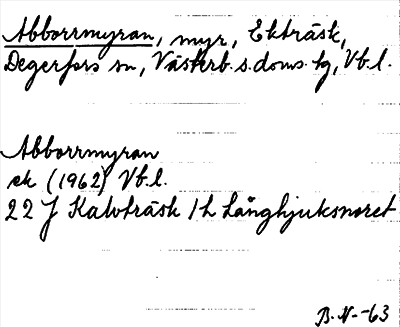 Abborrmyran, myr, Ekträsk,
Degerfors sn, Västerb. s. doms. hg, Vb. l.
Abborrmyran
ek (1962) Vb. l.
22 J Kalvträsk 1 h Långhjuksnoret
B. N. -63